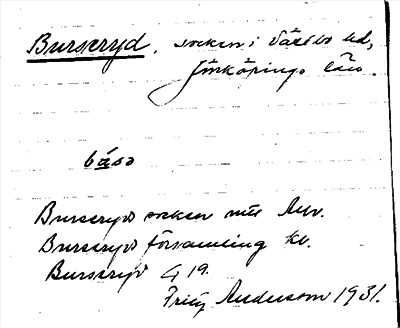 Burseryd, socken i Västbo hd,
Jönköpings län.
Burseryds socken
Burseryds församling kb.
Burseryd G 19.
Fritz Andersson 1931.